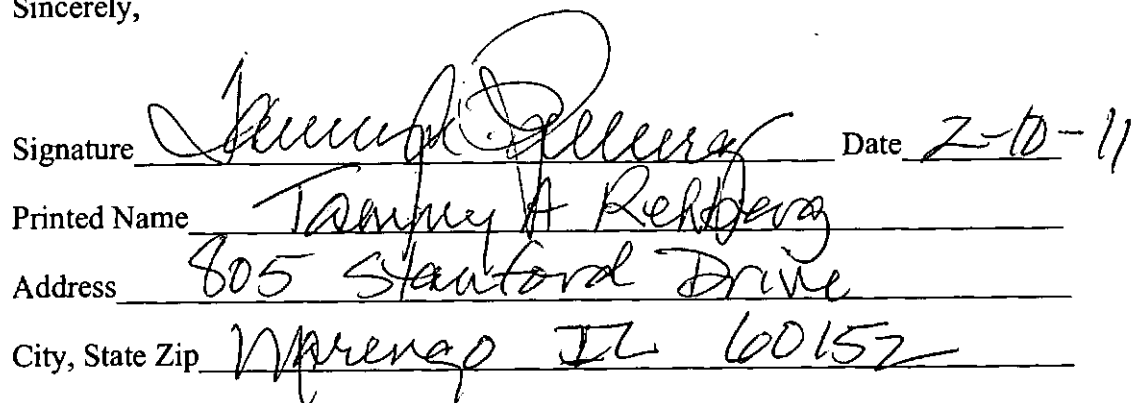 Sincerely,
Signature Date 2-10-11
Printed Name Tammy A Rehberg
Address 805 Stanford Drive
City, State Zip Marengo IL 60152